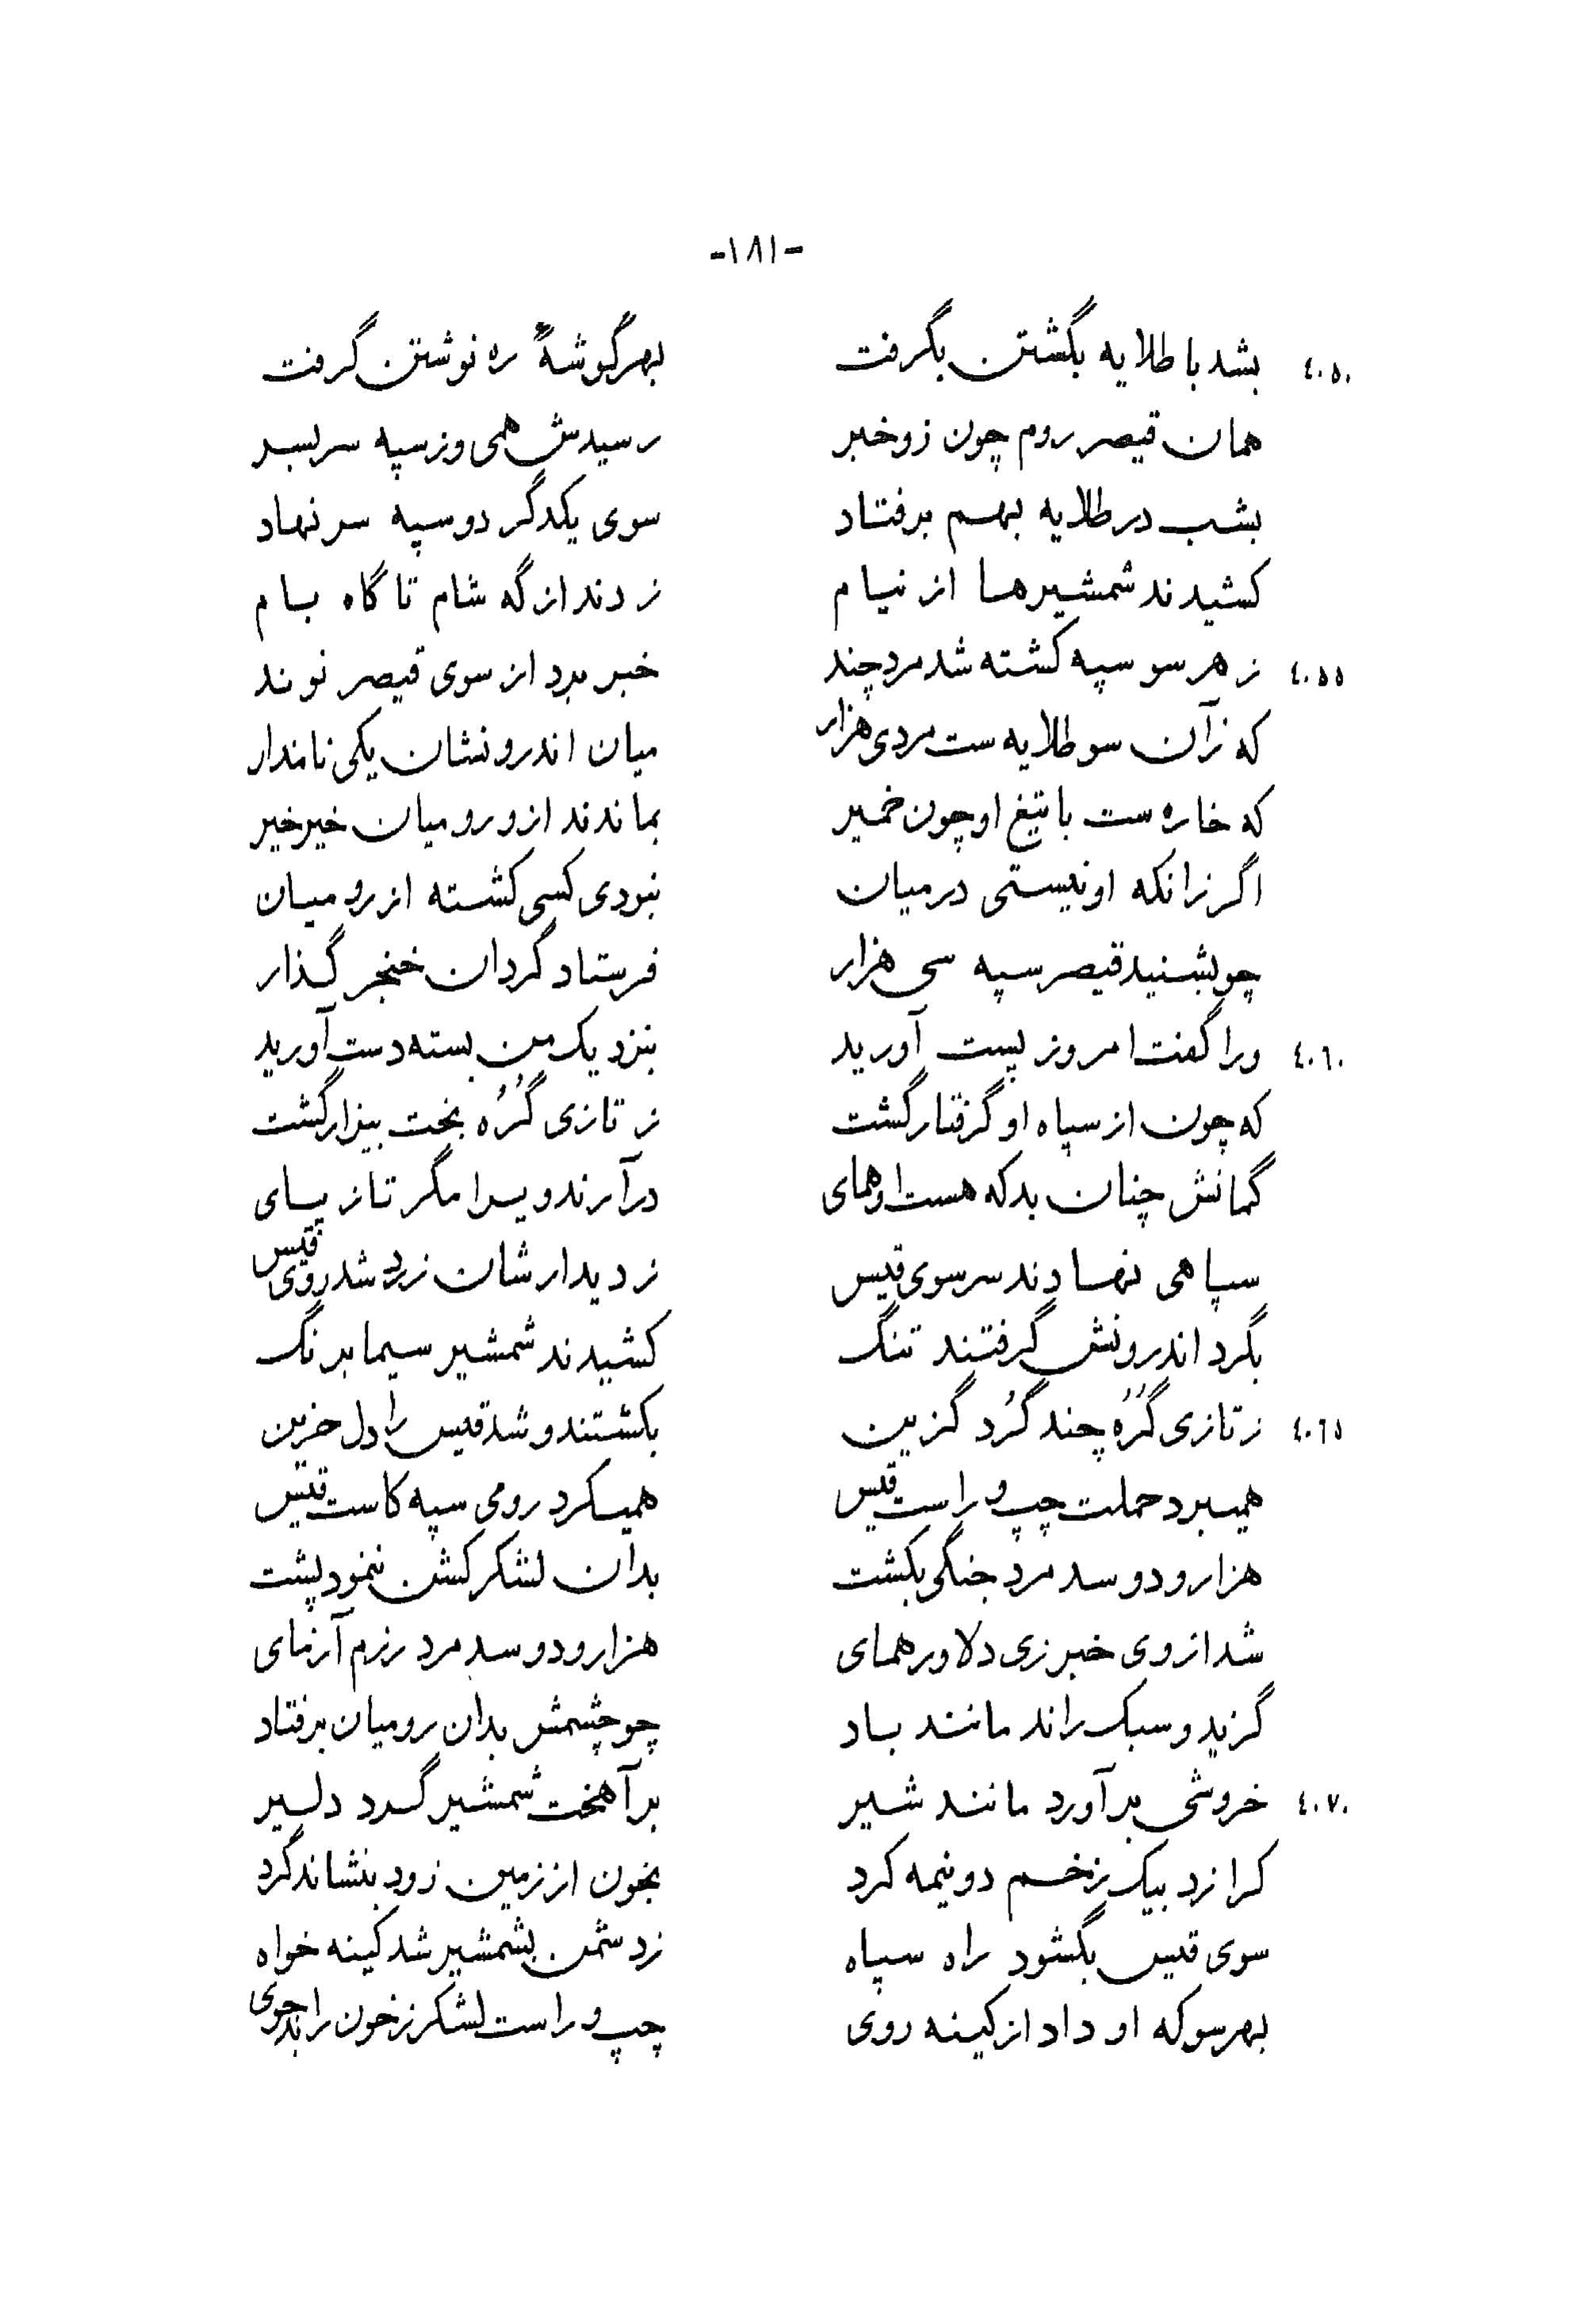 -۱۸۱-
۴۰۵۰ بشد با طلایه بگشتن بگرفت بهر گوشهٔ ره نوشتن گرفت
همان قیصر روم چون زو خبر رسیدش همی وز سپه سربسر
بشب در طلایه بهم برفتاد سوی یکدگر دو سپه سر نهاد
کشیدند شمشیرها از نیام زدند از گه شام تا گاه بام
۴۰۵۵ ز هر سو سپه کشته شد مرد چند خبر برد از سوی قیصر نوند
که زآن سو طلایه ست مردی هزار میان اندرونشان یکی نامدار
که خاره ست با تیغ او چون خمیر بماندند ازو رومیان خیرخیر
اگر زانکه او نیستی در میان نبودی کسی کشته از رومیان
چو بشنید قیصر سپه سی هزار فرستاد گردان خنجر گذار
۴۰۶۰ ورا گفت امروز پست آورید بنزدیک من بسته دست آورید
که چون از سپاه او گرفتار گشت ز تازی گُرُه بخت بیزار گشت
گمانش چنان بد که هست او همای درآرند ویرا مگر تاز پیای
سپاهی نهادند سر سوی قیس ز دیدارشان زرد شد روی قیس
بگرد اندرونش گرفتند تنگ کشیدند شمشیر سیماب رنگ
۴۰۶۵ ز تازی گُرُه چند گُرد گزین بکشتند و شد قیس را دل حزین
همیبرد حملت چپ و راست قیس همیکرد رومی سپه کاست قیس
هزار و دو سد مرد جنگی بکشت بدان لشکر کشن ننمود پشت
شد از وی خبر زی دلاور همای هزار و دو سد مرد رزم آزمای
گزید و سبک راند مانند باد چو چشمش بدان رومیان برفتاد
۴۰۷۰ خروشی برآورد مانند شیر برآهخت شمشیر گرد دلیر
کرا زد بیک زخم دو نیمه کرد بخون از زمین زود بنشاند گرد
سوی قیس بگشود راه سپاه ز دشمن بشمشیر شد کینه خواه
بهر سو که او داد از کینه روی چپ و راست لشکر ز خون راند جوی